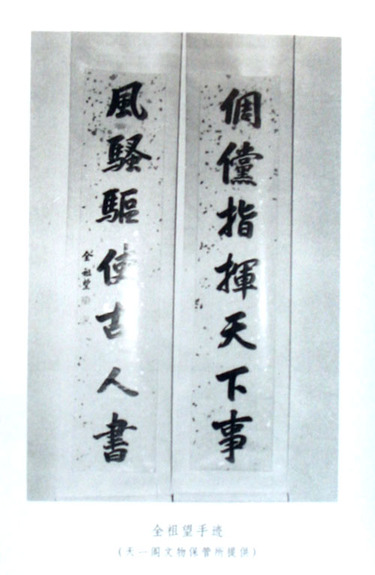 倜儻指揮天下事
風騷驅使古人書
全祖望
全祖望手迹
(天一阁文物保管所提供)